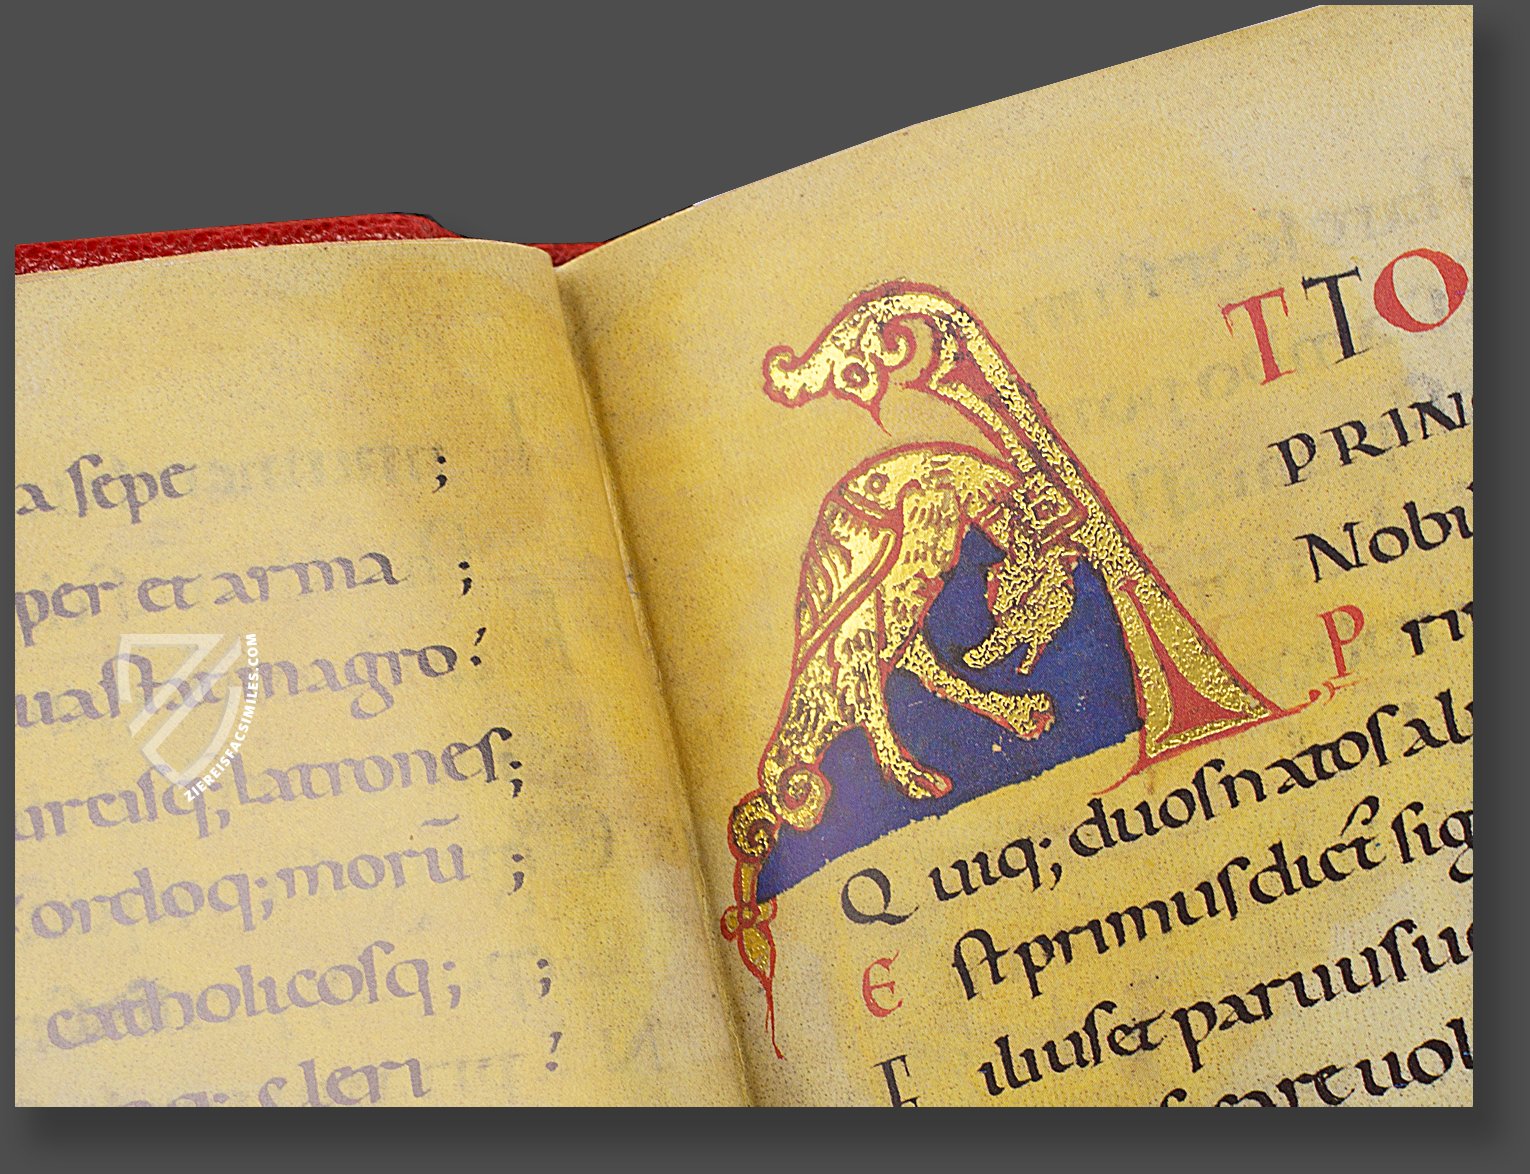 a sepe ;
per et arma ;
uasta magro:
urcisq; latrones;
ordoq; morū ;
catholicosq; ;
cleri
ZIEREISFACSIMILES.COM
ATTO
PRIN
Nobi
P
Q uiq; duos natos al
E st primus dict sig
F ilius et paruus